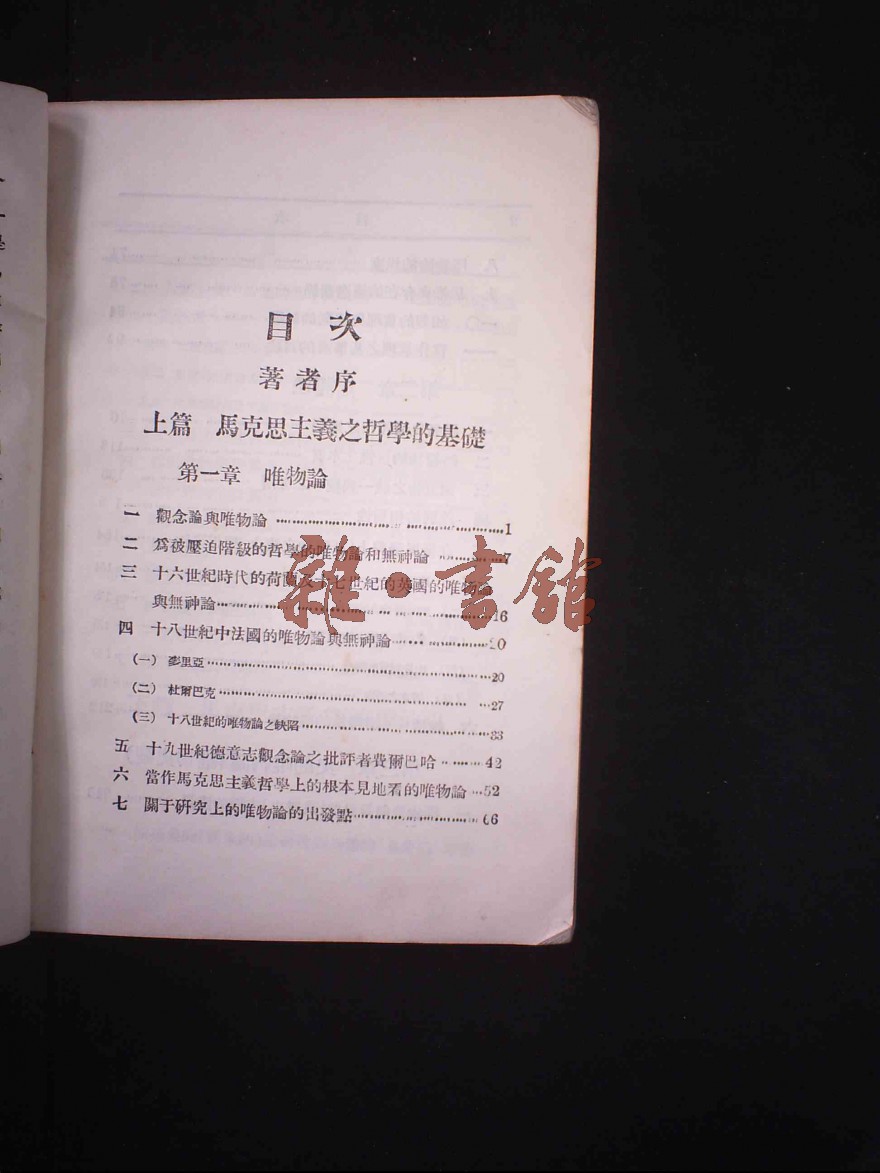 目次
著者序
上篇 馬克思主義之哲學的基礎
第一章 唯物論
一 觀念論與唯物論 1
二 爲被壓迫階級的哲學的唯物論和無神論 7
三 十六世紀時代的荷蘭及十七世紀的英國的唯物論
與無神論 16
四 十八世紀中法國的唯物論與無神論 20
(一) 麥里亞 20
(二) 杜爾巴克 27
(三) 十八世紀的唯物論之缺陷 33
五 十九世紀德意志觀念論之批評者費爾巴哈 42
六 當作馬克思主義哲學上的根本見地看的唯物論 52
七 關于研究上的唯物論的出發點 66
雜·書館